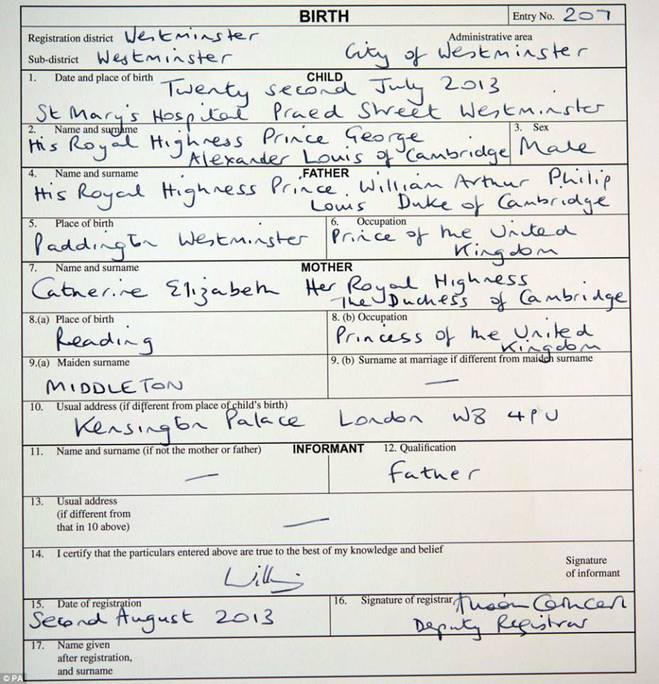 BIRTH
Entry No. 207
Registration district Westminster
Administrative area
Sub-district Westminster
City of Westminster
1. Date and place of birth
CHILD
Twenty second July 2013
St Mary's Hospital Praed Street Westminster
2. Name and surname
3. Sex
His Royal Highness Prince George
Alexander Louis of Cambridge
Male
4. Name and surname
FATHER
His Royal Highness Prince William Arthur Philip
Louis Duke of Cambridge
5. Place of birth
6. Occupation
Paddington Westminster
Prince of the United
Kingdom
7. Name and surname
MOTHER
Catherine Elizabeth Her Royal Highness
The Duchess of Cambridge
8.(a) Place of birth
8. (b) Occupation
Reading
Princess of the United
Kingdom
9.(a) Maiden surname
9. (b) Surname at marriage if different from maiden surname
MIDDLETON
—
10. Usual address (if different from place of child's birth)
Kensington Palace London W8 4PU
11. Name and surname (if not the mother or father)
INFORMANT
12. Qualification
—
Father
13. Usual address
(if different from
that in 10 above)
—
14. I certify that the particulars entered above are true to the best of my knowledge and belief
Signature
of informant
15. Date of registration
16. Signature of registrar
Second August 2013
Deputy Registrar
17. Name given
after registration,
and surname
© PA